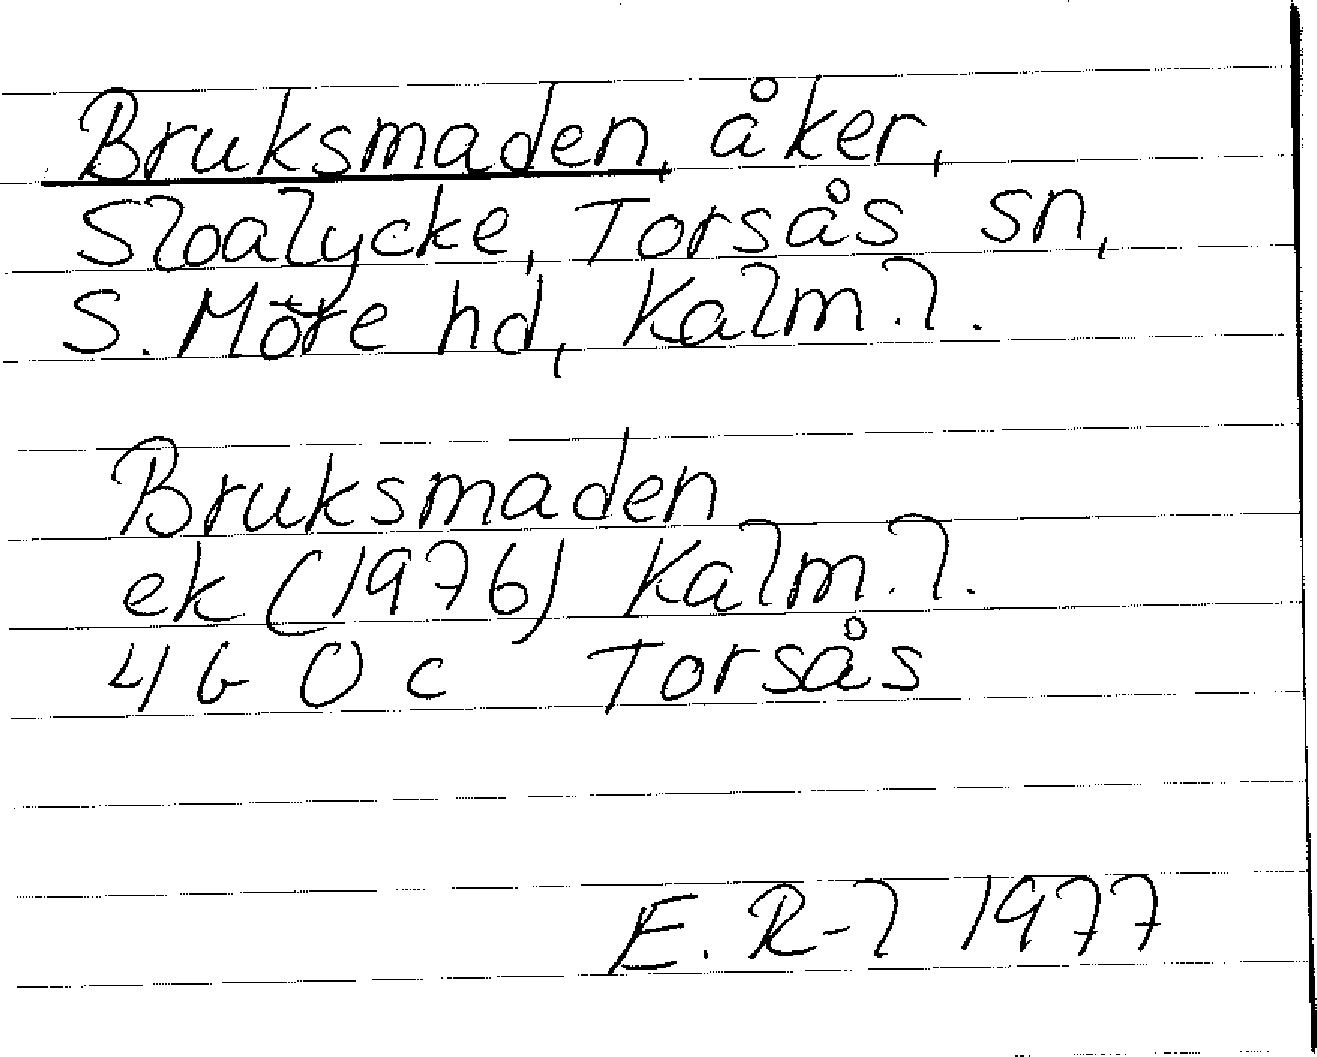 Bruksmaden, åker,
Sloalycke, Torsås sn,
S. Möre hd, Kalm. l.
Bruksmaden
ek (1976) Kalm. l.
4G 0c Torsås
E. R-l 1977